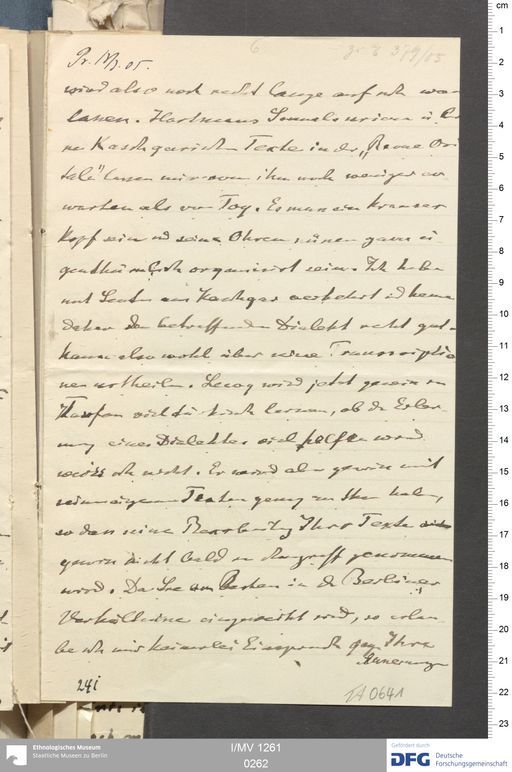 6
Pr. 14/3. 05.
wird also noch recht lange auf sich war-
lassen. Hartmanns
ne Kaschgarischen Texte in der „Revue Ori
tale" lassen mir von ihm noch weniger er
warten als von Foy. Es muss ein kranker
Kopf sein und seine Ohren müssen ganz ei
genthümlich organisirt sein. Ich habe
mit Leuten aus Kaschgar verkehrt und kenne
daher den betreffenden Dialekt recht gut,
kann also wohl über seine Transcriptio
nen urtheilen. Lecoq wird jetzt gewiss in
Turfan viel türkisch lernen, ob die Erler
nung eines Dialektes viel helfen wird
weiss ich nicht. Er wird aber gewiss mit
seinen eigenen Texten genug zu thun haben,
so dass eine Bearbeitung Ihrer Texte
gewiss nicht bald in Angriff genommen
wird. Da Sie am Besten in die Berliner
Verhältnisse eingeweiht sind, so erlau
be ich mir keinerlei Einspruch gegen Ihre
24i
TA 0641
cm
1
2
3
4
5
6
7
8
9
10
11
12
13
14
15
16
17
18
19
20
21
22
23
Ethnologisches Museum
Staatliche Museen zu Berlin
I/MV 1261
0262
Gefördert durch
DFG Deutsche
Forschungsgemeinschaft